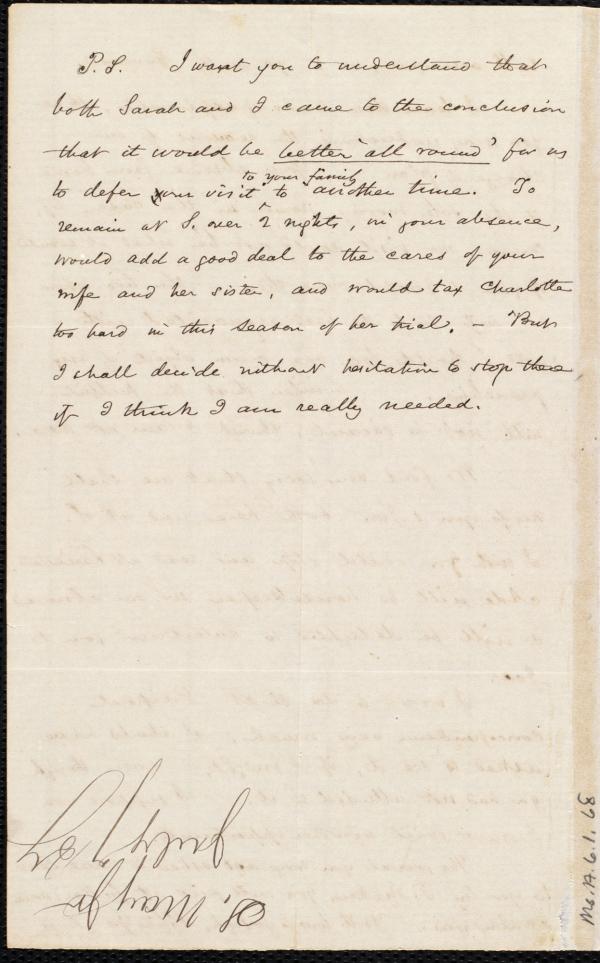 P.S. I want you to understand that
both Sarah and I came to the conclusion
that it would be better 'all round' for us
to defer our visit to your family to another time. To
remain at S. over 2 nights, in your absence,
would add a good deal to the cares of your
wife and her sister, and would tax Charlotte
too hard in this season of her trial. – But
I shall decide without hesitation to stop there
if I think I am really needed.
S. May Jr
July 
Ms. A. 6. 1. 68